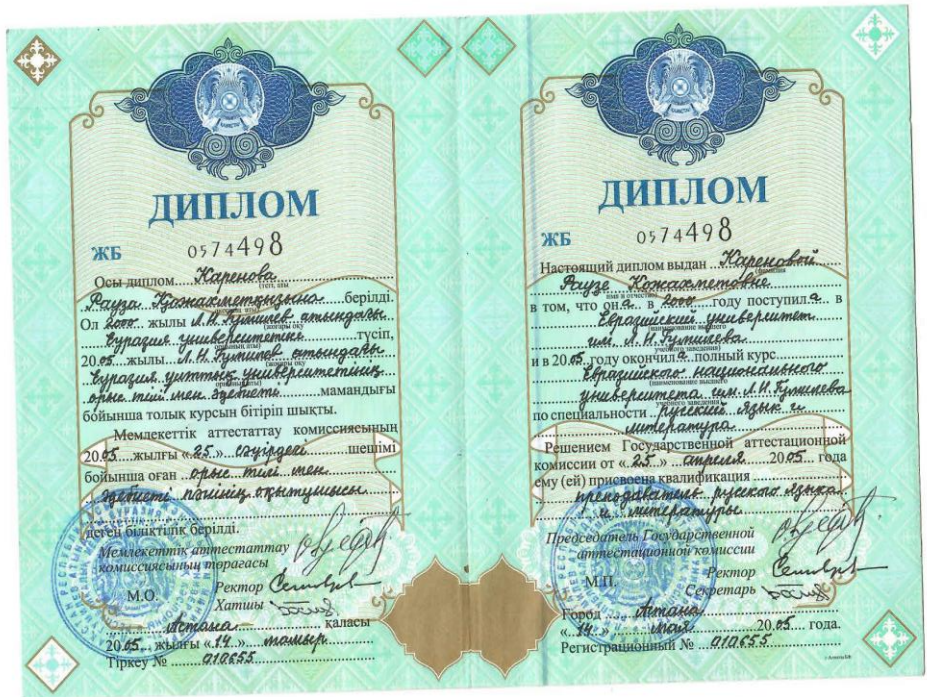 ДИПЛОМ
ЖБ 0574498
Осы диплом Каренова
Рауза Қожахметқызына берілді.
Ол 2000 жылы Л.Н. Гумилев атындағы
Еуразия университетіне түсіп,
2005 жылы Л.Н. Гумилев атындағы
Еуразия ұлттық университетінің
орыс тілі мен әдебиеті мамандығы
бойынша толық курсын бітіріп шықты.
Мемлекеттік аттестаттау комиссиясының
2005 жылғы «25» сәуірдегі шешімі
бойынша оған орыс тілі мен
әдебиеті пәнінің оқытушысы
деген біліктілік берілді.
Мемлекеттік аттестаттау
комиссиясының төрағасы
М.О.
Ректор
Хатшы
Астана қаласы
2005 жылғы «14» мамыр
Тіркеу № 010655
ДИПЛОМ
ЖБ 0574498
Настоящий диплом выдан Кареновой
Раузе Кожахметовне
в том, что она в 2000 году поступила в
Евразийский университет
(наименование высшего
им. Л.Н. Гумилева
учебного заведения)
и в 2005 году окончила полный курс
Евразийского национального
(наименование высшего
университета им. Л.Н. Гумилева
учебного заведения)
по специальности русский язык и
литература
Решением Государственной аттестационной
комиссии от «25» апреля 2005 года
ему (ей) присвоена квалификация
преподаватель русского языка
и литературы
Председатель Государственной
аттестационной комиссии
М.П.
Ректор
Секретарь
Город Астана
«14» мая 2005 года.
Регистрационный № 010655